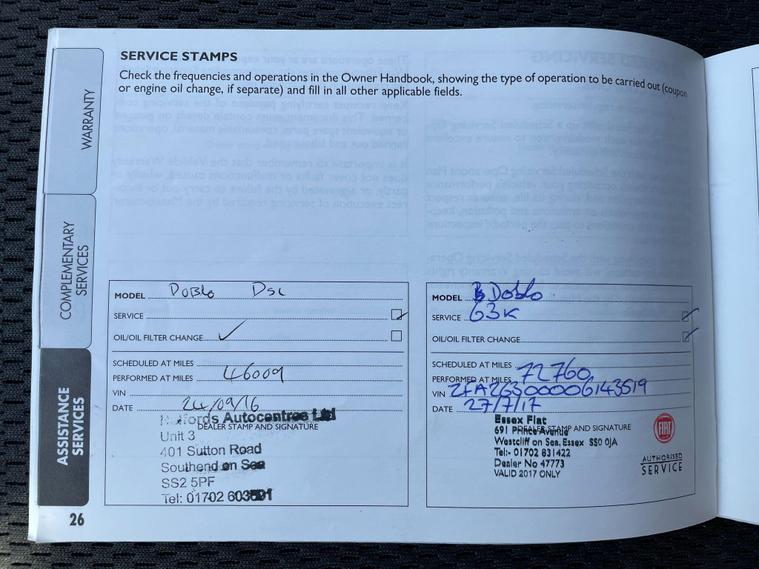 SERVICE STAMPS
Check the frequencies and operations in the Owner Handbook, showing the type of operation to be carried out (coupon
or engine oil change, if separate) and fill in all other applicable fields.
WARRANTY
COMPLEMENTARY
SERVICES
ASSISTANCE
SERVICES
MODEL Doblo Dsl
SERVICE
OIL/OIL FILTER CHANGE
SCHEDULED AT MILES
PERFORMED AT MILES 46009
VIN
DATE 24/09/16
DEALER STAMP AND SIGNATURE
Autocentres Ltd
Unit 3
401 Sutton Road
Southend on Sea
SS2 5PF
Tel: 01702
MODEL Doblo
SERVICE 63K
OIL/OIL FILTER CHANGE
SCHEDULED AT MILES
PERFORMED AT MILES 72760
VIN ZFA26300006143519
DATE 27/7/17
DEALER STAMP AND SIGNATURE
Essex Fiat
691 Prince Avenue
Westcliff on Sea, Essex SS0 0JA
Tel:- 01702 831422
Dealer No 47773
VALID 2017 ONLY
FIAT
AUTHORISED
SERVICE
26